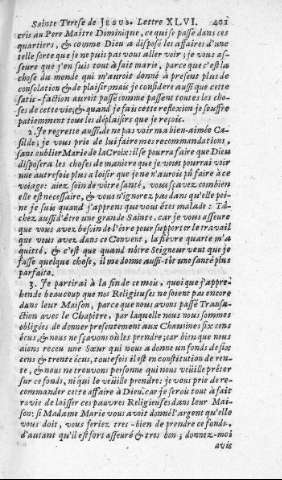 Sainte Térese de JESUS. Lettre XLVI. 401
cris au Pere Maître Dominique, ce qui se passe dans ces
quartiers, & comme Dieu a disposé les affaires d'une
telle sorte que je ne puis pas vous aller voir; je vous as-
seure que j'en suis tout à fait marie, parce que c'est la
chose du monde qui m'auroit donné à present plus de
consolation & de plaisir: mais je considere aussi que cette
satis-faction auroit passé comme passent toutes les cho-
ses de cette vie; & quand je fais cette reflexion je souffre
patiemment tous les déplaisirs que je reçois.
2. Je regrette aussi de ne pas voir ma bien-aimée Ca-
silde; je vous prie de lui faire mes recommandations,
sans oublier Marie de la Croix: il se pourra faire que Dieu
disposera les choses de maniere que je vous pourrai voir
une autrefois plus à loisir que je n'aurois pû faire à ce
voiage: aiez soin de vôtre santé, vous sçavez combien
elle est necessaire, & vous n'ignorez pas dans qu'elle pei-
ne je suis quand j'apprens que vous étes malade: Tâ-
chez aussi d'être une grande Sainte, car je vous asseure
que vous avez besoin de l'être pour supporter le travail
que vous avez dans ce Convent, la fiévre quarte m'a
quitté, & c'est que quand nôtre Seigneur veut que je
fasse quelque chose, il me donne aussi-tôt une santé plus
parfaite.
3. Je partirai à la fin de ce mois, quoi que j'appre-
hende beaucoup que nos Religieuses ne soient pas encore
dans leur Maison, parce que nous avons passé Transa-
ction avec le Chapitre, par laquelle nous nous sommes
obligés de donner presentement aux Chanoines six cens
écus, & nous ne sçavons où les prendre; car bien que nous
aions receu une Sœur qui nous a donné un fonds de six
cens & trente écus, toutefois il est en constitution de ren-
te, & nous ne trouvons personne qui nous veüille prêter
sur ce fonds, ni qui le veüille prendre: je vous prie de re-
commander cette affaire à Dieu: car je serois tout à fait
ravie de laisser ces pauvres Religieuses dans leur Mai-
son: si Madame Marie vous avoit donné l'argent qu'elle
vous doit, vous feriez tres-bien de prendre ce fonds,
d'autant qu'il est fort asseuré & tres bon; donnez-moi
avis